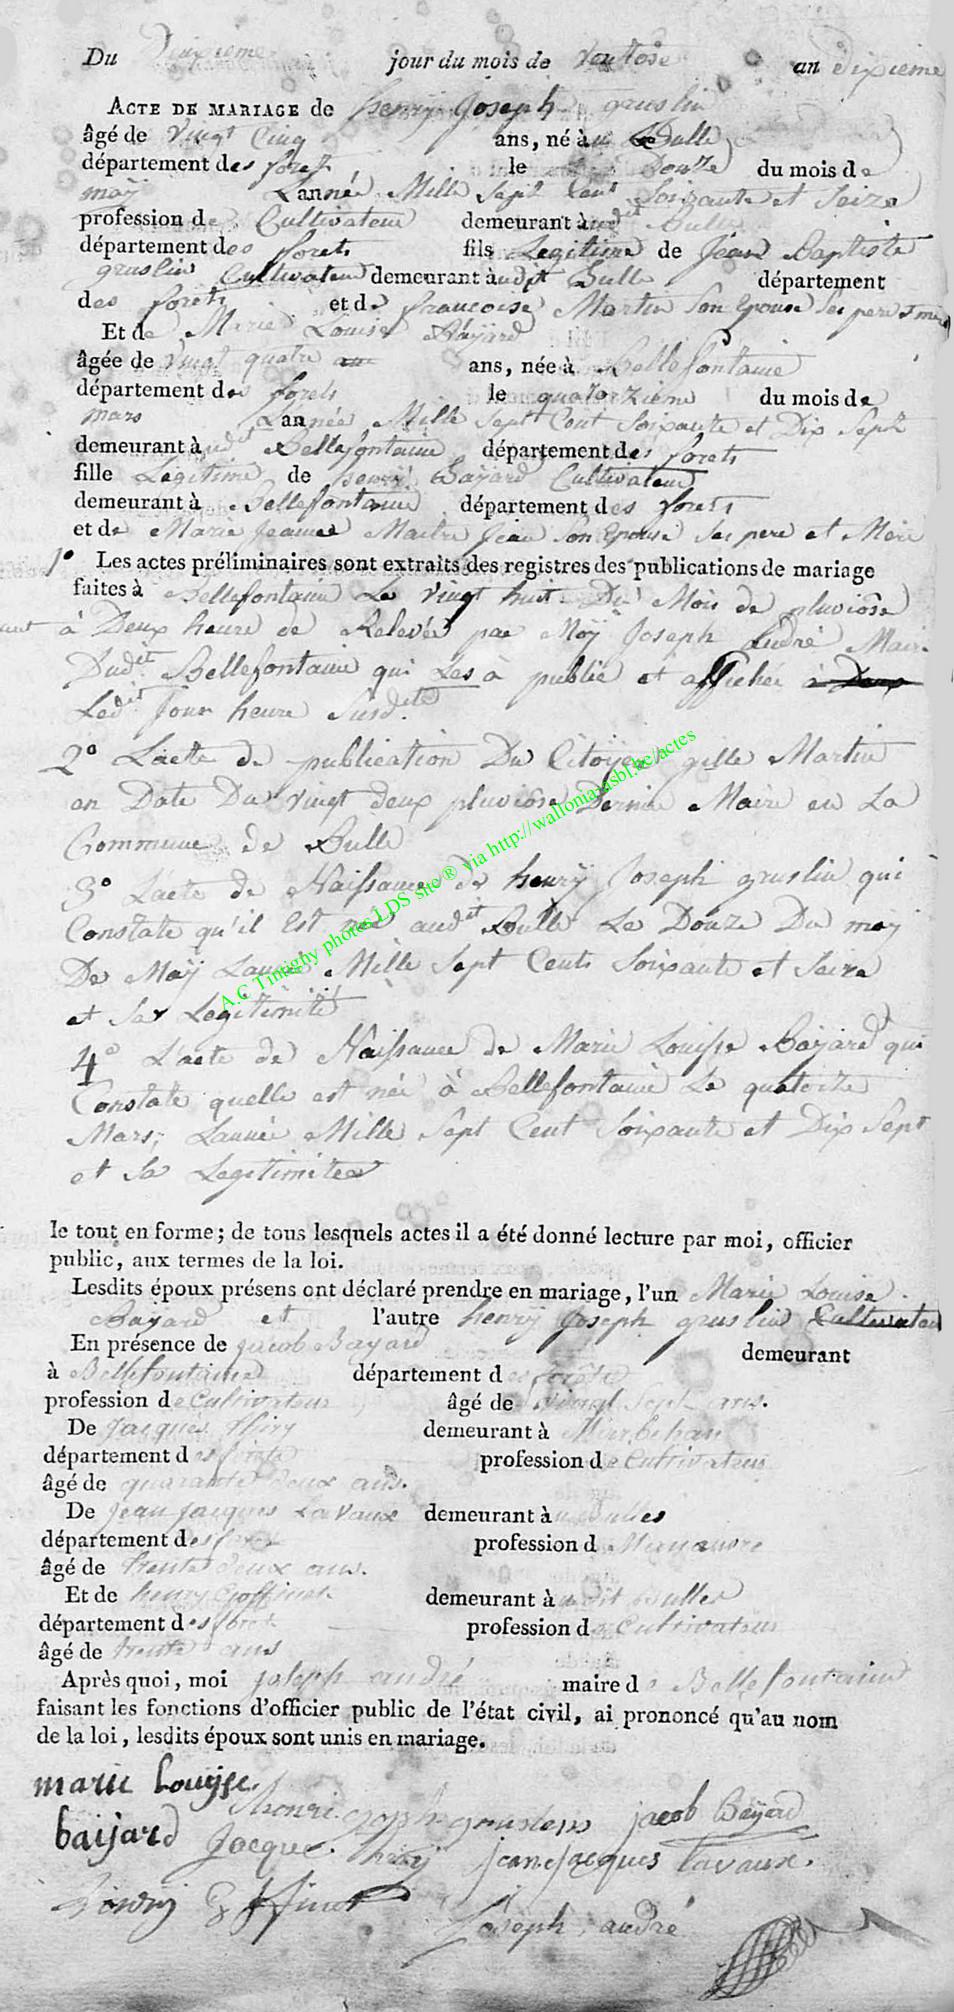 Du Dixieme jour du mois de ventose an dixieme
ACTE DE MARIAGE de henrÿ Joseph gruslin
âgé de vingt Cinq ans, né à Bulle
département des forets le Douze du mois de
maÿ Lannée Mille Sept Cent Soixante et Seize
profession de Cultivateur demeurant àudit Bulle
département des forets fils Legitime de Jean Baptiste
gruslin Cultivateur demeurant àudit Bulle département
des forets et de francoise Martin Son Epouse Ses pere et mere
Et de Marie Louise Baÿard
âgée de vingt quatre ans, née à Bellefontaine
département des forets le quatorzieme du mois de
mars Lannée Mille Sept Cent Soixante et Dix Sept
demeurant àudit Bellefontaine département des forets
fille Legitime de henrÿ Baÿard Cultivateur
demeurant à Bellefontaine département des forets
et de Marie Jeanne Maitre Jean Son Epouse Ses pere et Mere
1° Les actes préliminaires sont extraits des registres des publications de mariage
faites à Bellefontaine Le vingt huit Du Mois de pluviôse
à Deux heure de Relevée par Moÿ Joseph andré Maire
Dudit Bellefontaine qui Les à publié et affichée à Deux
Ledit Jour heure Susdite
2° Lacte de publication Du Citoÿen gille Martin
en Date Du vingt deux pluviôse Dernier Maire en La
Commune de Bulle
3° Lacte de Naissance de henrÿ Joseph gruslin qui
Constate qu'il Est né audit Bulle Le Douze Du moÿ
De Maÿ Lannée Mille Sept Cents Soixante et Seize
et Sa Legitimité
4° L'acte de Naissance de Marie Louisse Baÿard qui
Constate quelle est née à Bellefontaine Le quatorze
Mars, Lannée Mille Sept Cent Soixante et Dix Sept
et Sa Legitimitée
le tout en forme; de tous lesquels actes il a été donné lecture par moi, officier
public, aux termes de la loi.
Lesdits époux présens ont déclaré prendre en mariage, l'un Marie Louise
Baÿard et l'autre henrÿ Joseph gruslin Cultivateur
En présence de jacob Bayard demeurant
à Bellefontaine département des forêts
profession de Cultivateur âgé de vingt Sept ans.
De Jacques thiry demeurant à
département des forets profession de Cultivateur
âgé de quarante deux ans.
De Jean Jacques Lavaux demeurant àu Bulles
département des forets profession d Manœuvre
âgé de trente deux ans.
Et de henry Goffinet demeurant àudit Bulles
département des forets profession de Cultivateur
âgé de trente ans
Après quoi, moi joseph andré maire de Bellefontaine
faisant les fonctions d'officier public de l'état civil, ai prononcé qu'au nom
de la loi, lesdits époux sont unis en mariage.
marie Louysse
baijard
henri joseph gruslens jacob Bayard
Jacque thiry jean jacques Lavaux.
henry Goffinet
Joseph andré
A.C Tintigny photos LDS site ® via http://wallonia.asbl.be/actes